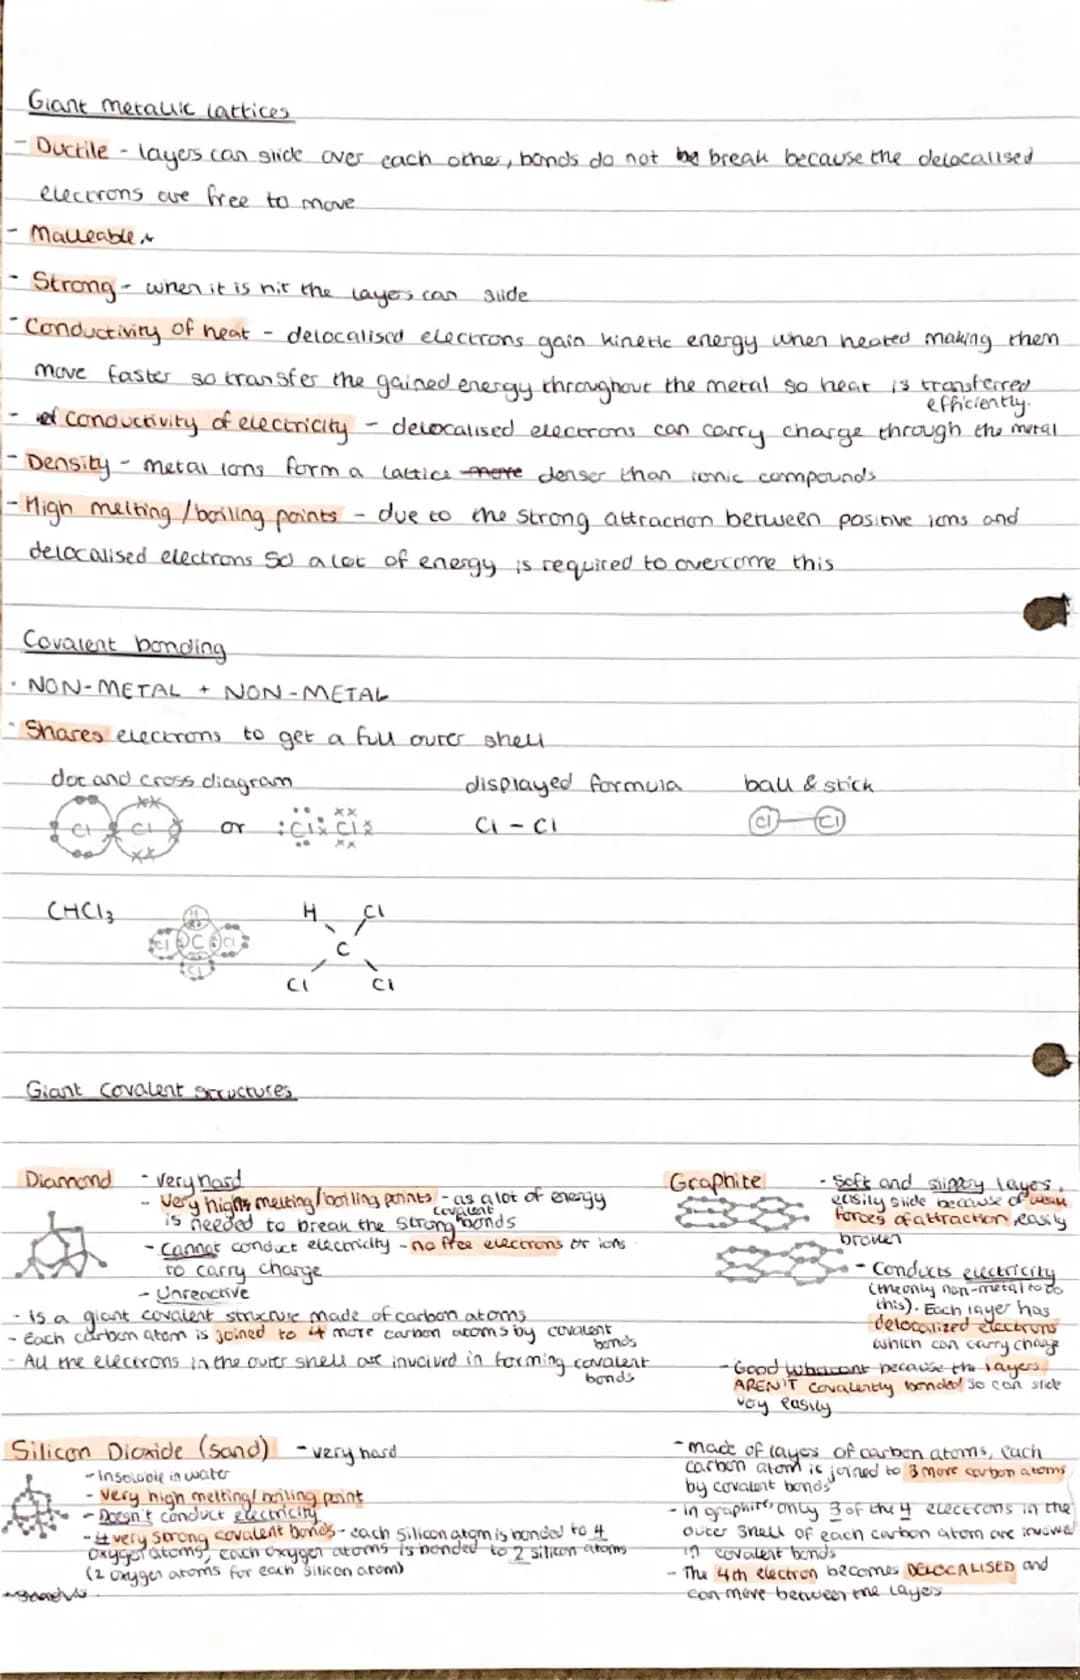 Giant metallic lattices
- Ductile - layers can slide over each other, bonds do not be break because the delocalised
electrons are free to move
- Malleable
- Strong - when it is hit the layers can slide
- Conductivity of heat - delocalised electrons gain kinetic energy when heated making them
move faster so transfer the gained energy throughout the metal so heat is transferred
efficiently.
- of conductivity of electricity - delocalised electrons can carry charge through the metal
- Density - metal ions form a lattice more denser than ionic compounds
- High melting/boiling points - due to the strong attraction between positive ions and
delocalised electrons so a lot of energy is required to overcome this
Covalent bonding
· NON-METAL + NON-METAL
· Shares electrons to get a full outer shell
dot and cross diagram displayed formula ball & stick
Cl Cl or Cl Cl Cl - Cl Cl Cl
CHCl3
H Cl
H
Cl C Cl
C
Cl
Cl Cl
Giant Covalent structures
Diamond - very hard
- Very high melting/boiling points - as a lot of energy
is needed to break the strong covalent bonds
- Cannot conduct electricity - no free electrons or ions
to carry charge
- Unreactive
- is a giant covalent structure made of carbon atoms
- Each carbon atom is joined to 4 more carbon atoms by covalent
bonds
- All the electrons in the outer shell are involved in forming covalent
bonds
Graphite - Soft and slippy layers,
easily slide because of weak
forces of attraction, easily
broken
- Conducts electricity
(the only non-metal to do
this). Each layer has
delocalized electrons
which can carry charge
- Good because the layers
AREN'T covalently bonded so can slide
very easily
- made of layers of carbon atoms, each
carbon atom is joined to 3 more carbon atoms
by covalent bonds
- in graphite, only 3 of the 4 electrons in the
outer shell of each carbon atom are involved
in covalent bonds
- The 4th electron becomes DELOCALISED and
can move between the layers
Silicon Dioxide (sand) - very hard
- Insoluble in water
- Very high melting/boiling point
- Doesn't conduct electricity
- 4 very strong covalent bonds - each silicon atom is bonded to 4
oxygen atoms, each oxygen atoms is bonded to 2 silicon atoms
(2 oxygen atoms for each silicon atom)